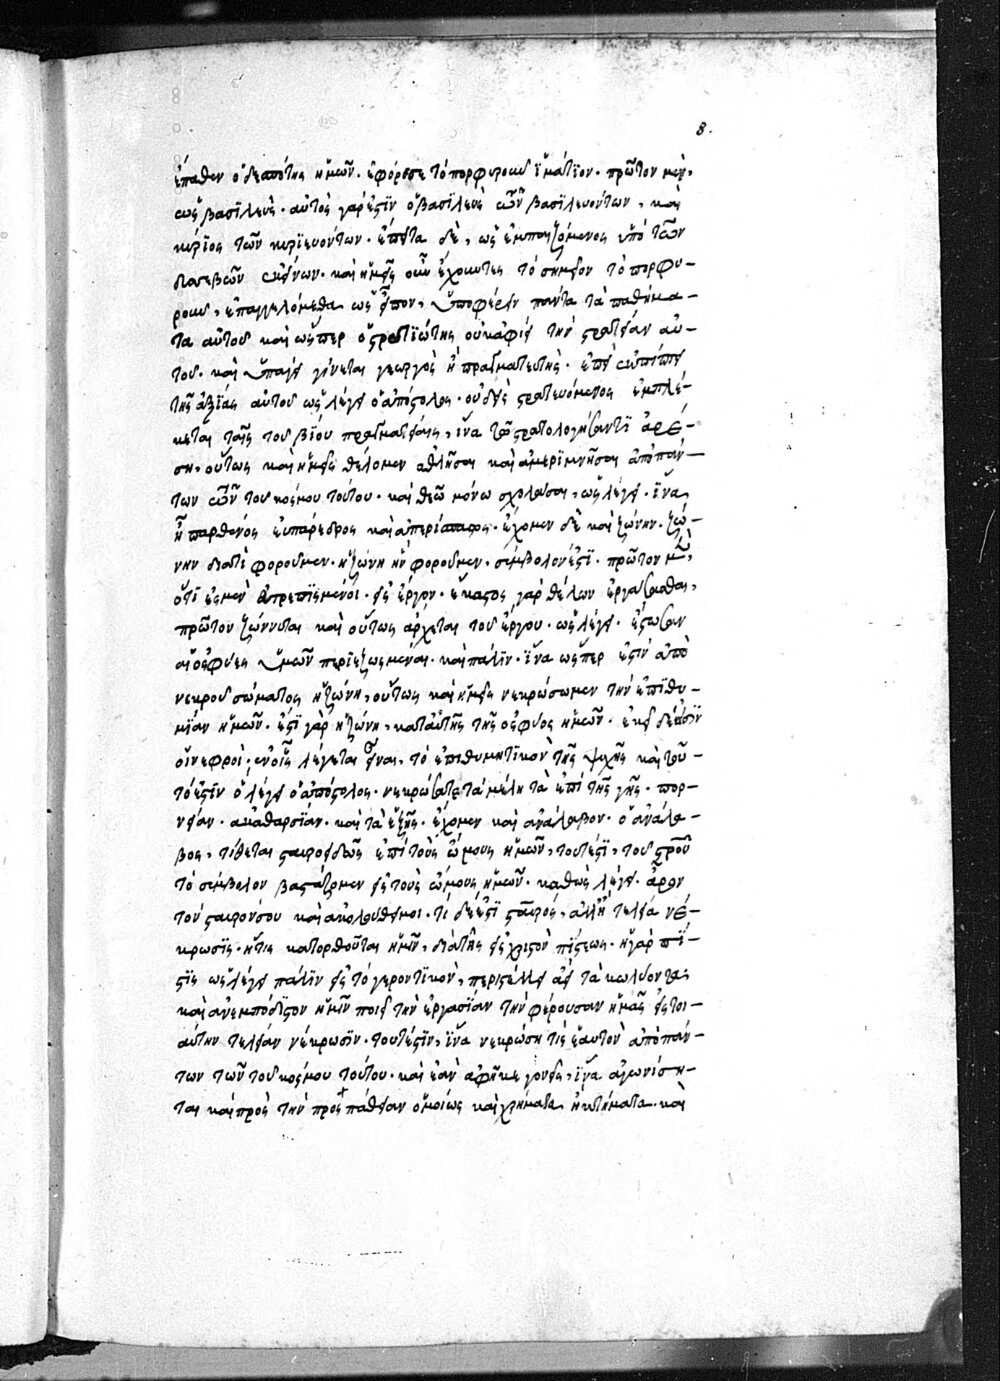 8.
ἔπαθεν ὁ δεσπότης ἡμῶν. ἐφόρεσε τὸ πορφυροῦν ἱμάτϊον. πρῶτον μὲν,
ὡς βασϊλεὺς. αὐτὸς γάρ ἐστϊν ὁ βασϊλεὺς τῶν βασϊλευόντων, καὶ
κύρϊος τῶν κυρϊευόντων. ἔπειτα δὲ, ὡς ἐμπαιζόμενος ὑπὸ τῶν
δυσεβῶν ἐκείνων. καὶ ἡμεῖς οὖν ἔχοντες τὸ σημεῖον τὸ πορφυ-
ροῦν, ἐπαγγελόμεθα ὡς εἶπον, ὑποφέρειν πάντα τὰ παθήμα-
τα αὐτοῦ καὶ ὥσπερ ὁ στρατϊώτης οὐκ ἀφίει τὴν στρατείαν αὐ-
τοῦ. καὶ ὑπάγει γίνεται γεωργὸς ἢ πραγματευτὴς. ἐπεὶ ἐκπίπτει
τῆς ἀξίας αὐτοῦ ὡς λέγει ὁ ἀπόστολος. οὐδεὶς στρατευόμενος ἐμπλέ-
κεται ταῖς τοῦ βίου πραγματείαις, ἵνα τῷ στρατολογήσαντϊ ἀρέ-
ση. οὕτως καὶ ἡμεῖς θέλομεν ἀθλῆσαι καὶ ἀμεριμνῆσαι ἀπὸ πάν-
των τῶν τοῦ κόσμου τούτου. καὶ θεῶ μόνω σχολάσαι, ὡς λέγει. ἵνα
ἦ παρθένος εὐπάρεδρος καὶ ἀπερίσπαστος. ἔχομεν δὲ καὶ ζώνην. ζώ-
νην διατὶ φοροῦμεν. ἡ ζώνη ἣν φοροῦμεν, σύμβολόν ἐστϊ. πρῶτον μὲν,
ὅτϊ ἐσμὲν εὐτρεπϊσμένοι. εἰς ἔργον. ἕκαστος γὰρ θέλων ἐργάσασθαι,
πρῶτον ζώννυται καὶ οὕτως ἄρχεται τοῦ ἔργου. ὡς λέγει. ἔστωσαν
αἱ ὀσφύες ὑμῶν περϊεζωσμέναι. καὶ πάλϊν. ἵνα ὥσπερ ἐστϊν ἀπὸ
νεκροῦ σώματος ἡ ζώνη, οὕτως καὶ ἡμεῖς νεκρώσωμεν τὴν ἐπϊθυ-
μϊαν ἡμῶν. ἐστϊ γὰρ ἡ ζώνη, κατ αὐτῆς τῆς ὀσφύος ἡμῶν. ἐκεῖ δέ εἰσϊν
οἱ νεφροὶ, ἐν οἷς λέγεται εἶναι, τὸ ἐπιθυμητϊκὸν τῆς ψυχῆς καὶ τοῦ-
τό ἐστϊν ὃ λέγει ὁ ἀπόστολος. νεκρώσατε τὰ μέλη τὰ ἐπὶ τῆς γῆς. πορ-
νείαν. ἀκαθαρσϊαν. καὶ τὰ ἑξῆς. ἔχομεν καὶ ἀνάλαβον. ὁ ἀνάλα-
βος, τίθεται σταυροειδῶς ἐπὶ τοὺς ὤμους ἡμῶν, τουτέστϊ, τοῦ στροῦ
τὸ σύμβολον βαστάζομεν εἰς τοὺς ὤμους ἡμῶν. καθὼς λέγει. ἆρον
τὸν σταυρόν σου καὶ ἀκολούθει μοι. τί δέ ἐστϊ σταυρὸς, ἀλλ' ἢ τελεία νέ-
κρωσϊς. ἥτις κατορθοῦται ἡμῖν, διὰ τῆς εἰς χριστὸν πίστεως. ἡ γὰρ πί-
στϊς ὡς λέγει πάλϊν εἰς τὸ γεροντϊκὸν, περιστέλλει ἀεὶ τὰ κωλύοντα,
καὶ ἀνεμπόδϊστον ἡμῖν ποιεῖ τὴν ἐργασϊαν τὴν φέρουσαν ἡμᾶς εἰς τοι-
αύτην τελείαν νέκρωσϊν. τουτέστϊν, ἵνα νεκρώση τις ἑαυτὸν ἀπὸ πάν-
των τῶν τοῦ κόσμου τούτου. καὶ ἐὰν ἀφῆκε γονεῖς, ἵνα ἀγωνίση-
ται καὶ πρὸς τὴν προσπάθειαν ὁμοίως καὶ χρήματα ἢ κτήματα. καὶ